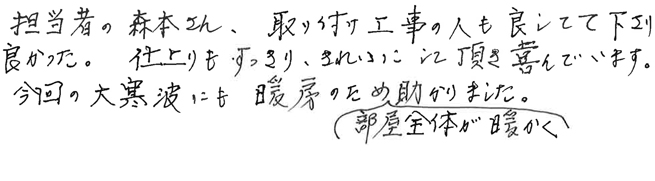 担当者の森本さん、取り付け工事の人も良してて下さり
良かった。仕上りもすっきり、きれいにして頂き喜んでいます。
今回の大寒波にも暖房のため助かりました。
(部屋全体が暖かく)